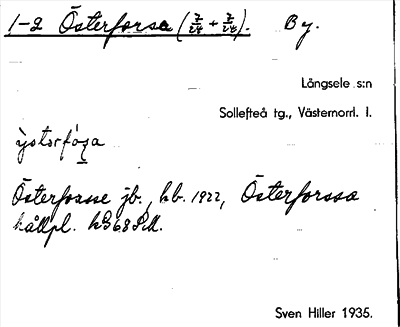 1-2 Österforsa (7/24 + 7/24). By.
Långsele s:n
Sollefteå tg., Västernorrl. l.
Österforsse jb., kb. 1922, Österforssa
hållpl.
Sven Hiller 1935.